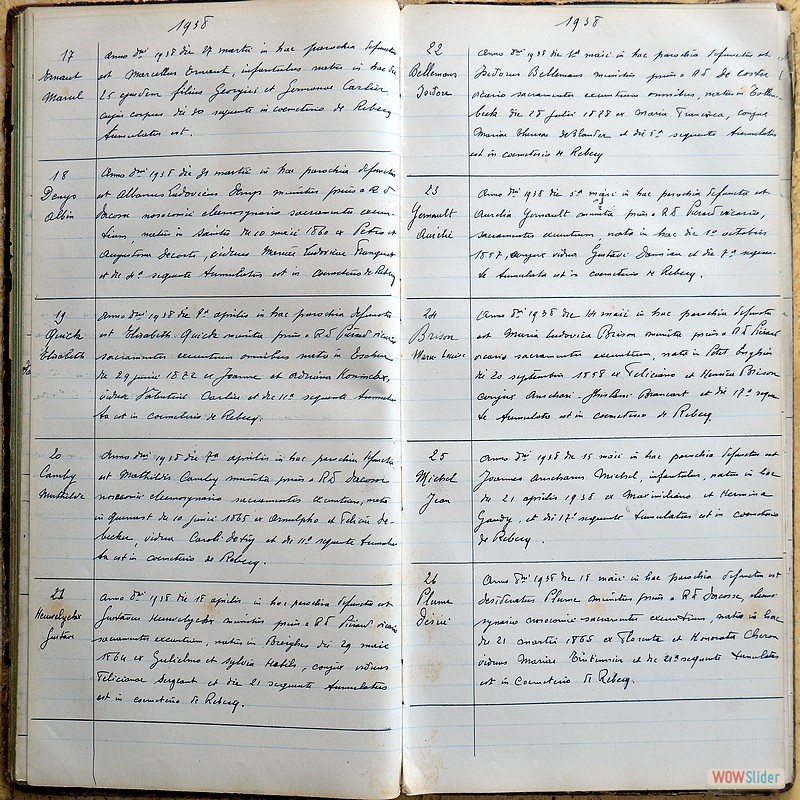 1938
17
Ernaut
Marcel
Anno dni 1938 die 27 martii in hac parochia defunctus
est Marcellus Ernaut, infantulus natus in hac die
25 ejusdem filius Georgii et Germanae Carlier,
cujus corpus die 30 sequente in coemeterio de Rebecq
tumulatus est.
18
Denys
Albin
Anno dni 1938 die 31 martii in hac parochia defunctus
est Albanus Ludovicus Denys munitus prius a R D
Dacosse nosocomii eleemosynario sacramentis exeun-
tium, natus in Saintes die 10 maii 1860 ex Petro et
Augustina Decorte, viduus Mariae Ludovicae
et die 4a sequente tumulatus est in coemeterio de Rebecq
19
Quick
Elisabeth
Anno dni 1938 die 9a aprilis in hac parochia defuncta
est Elisabeth Quick munita prius a R D Pirard vicario
sacramentis exeuntium omnibus nata in
die 29 junii 1872 ex Joanne et Adriana
vidua Valentini Carlier et die 11a sequente tumula-
ta est in coemeterio de Rebecq.
20
Camby
Mathilde
Anno dni 1938 die 7a aprilis in hac parochia defuncta
est Mathildis Camby munita prius a R D Dacosse
nosocomii eleemosynario sacramentis exeuntium, nata
in Quenast die 10 junii 1865 ex Arnulpho et Felicia De-
becker, vidua Caroli et die 11a sequente tumula-
ta est in coemeterio de Rebecq.
21
Heuvelyckx
Gustave
Anno dni 1938 die 18 aprilis in hac parochia defunctus est
Gustavus Heuvelyckx munitus prius a R D Pirard vicario
sacramentis exeuntium, natus in Bierghes die 29 maii
1864 ex Gulielmo et Sylvia Habils, conjux viduus
Felicianae Sergeant et die 21 sequente tumulatus
est in coemeterio de Rebecq.
1938
22
Bellemans
Isidore
Anno dni 1938 die 1a maii in hac parochia defunctus est
Isidorus Bellemans munitus prius a R D De Coster
vicario sacramentis exeuntium omnibus, natus in Tollem-
beek die 28 julii 1828 ex Maria Francisca, conjux
Maria Theresa De Blander et die 5a sequente tumulatus
est in coemeterio de Rebecq
23
Gernault
Aurélie
Anno dni 1938 die 5a maii in hac parochia defuncta est
Aurelia Gernault munita prius a R D Pirard vicario,
sacramentis exeuntium, nata in hac die 1a octobris
1857, conjux vidua Gustavi Damian et die 7a sequen-
te tumulata est in coemeterio de Rebecq.
24
Brison
Marie Louise
Anno dni 1938 die 14 maii in hac parochia defuncta
est Maria Ludovica Brison munita prius a R D Pirard
vicario sacramentis exeuntium, nata in Petit Enghien
die 20 septembris 1858 ex Feliciano et Henrica Brison
conjux Anschari Ghislani Brancart et die 17a sequen-
te tumulata est in coemeterio de Rebecq
25
Michel
Jean
Anno dni 1938 die 15 maii in hac parochia defunctus est
Joannes Anscharus Michel, infantulus, natus in hac
die 21 aprilis 1938 ex Maximiliano et Hermina
Gaudy, et die 17a sequente tumulatus est in coemeterio
de Rebecq.
26
Plume
Désiré
Anno dni 1938 die 18 maii in hac parochia defunctus est
Desideratus Plume munitus prius a R D Dacosse, eleemo-
synario nosocomii sacramentis exeuntium, natus in hac
die 21 martii 1865 ex Florente et Honorata Cheron
viduus Mariae et die 21a sequente tumulatus
est in coemeterio de Rebecq.
WOWSlider